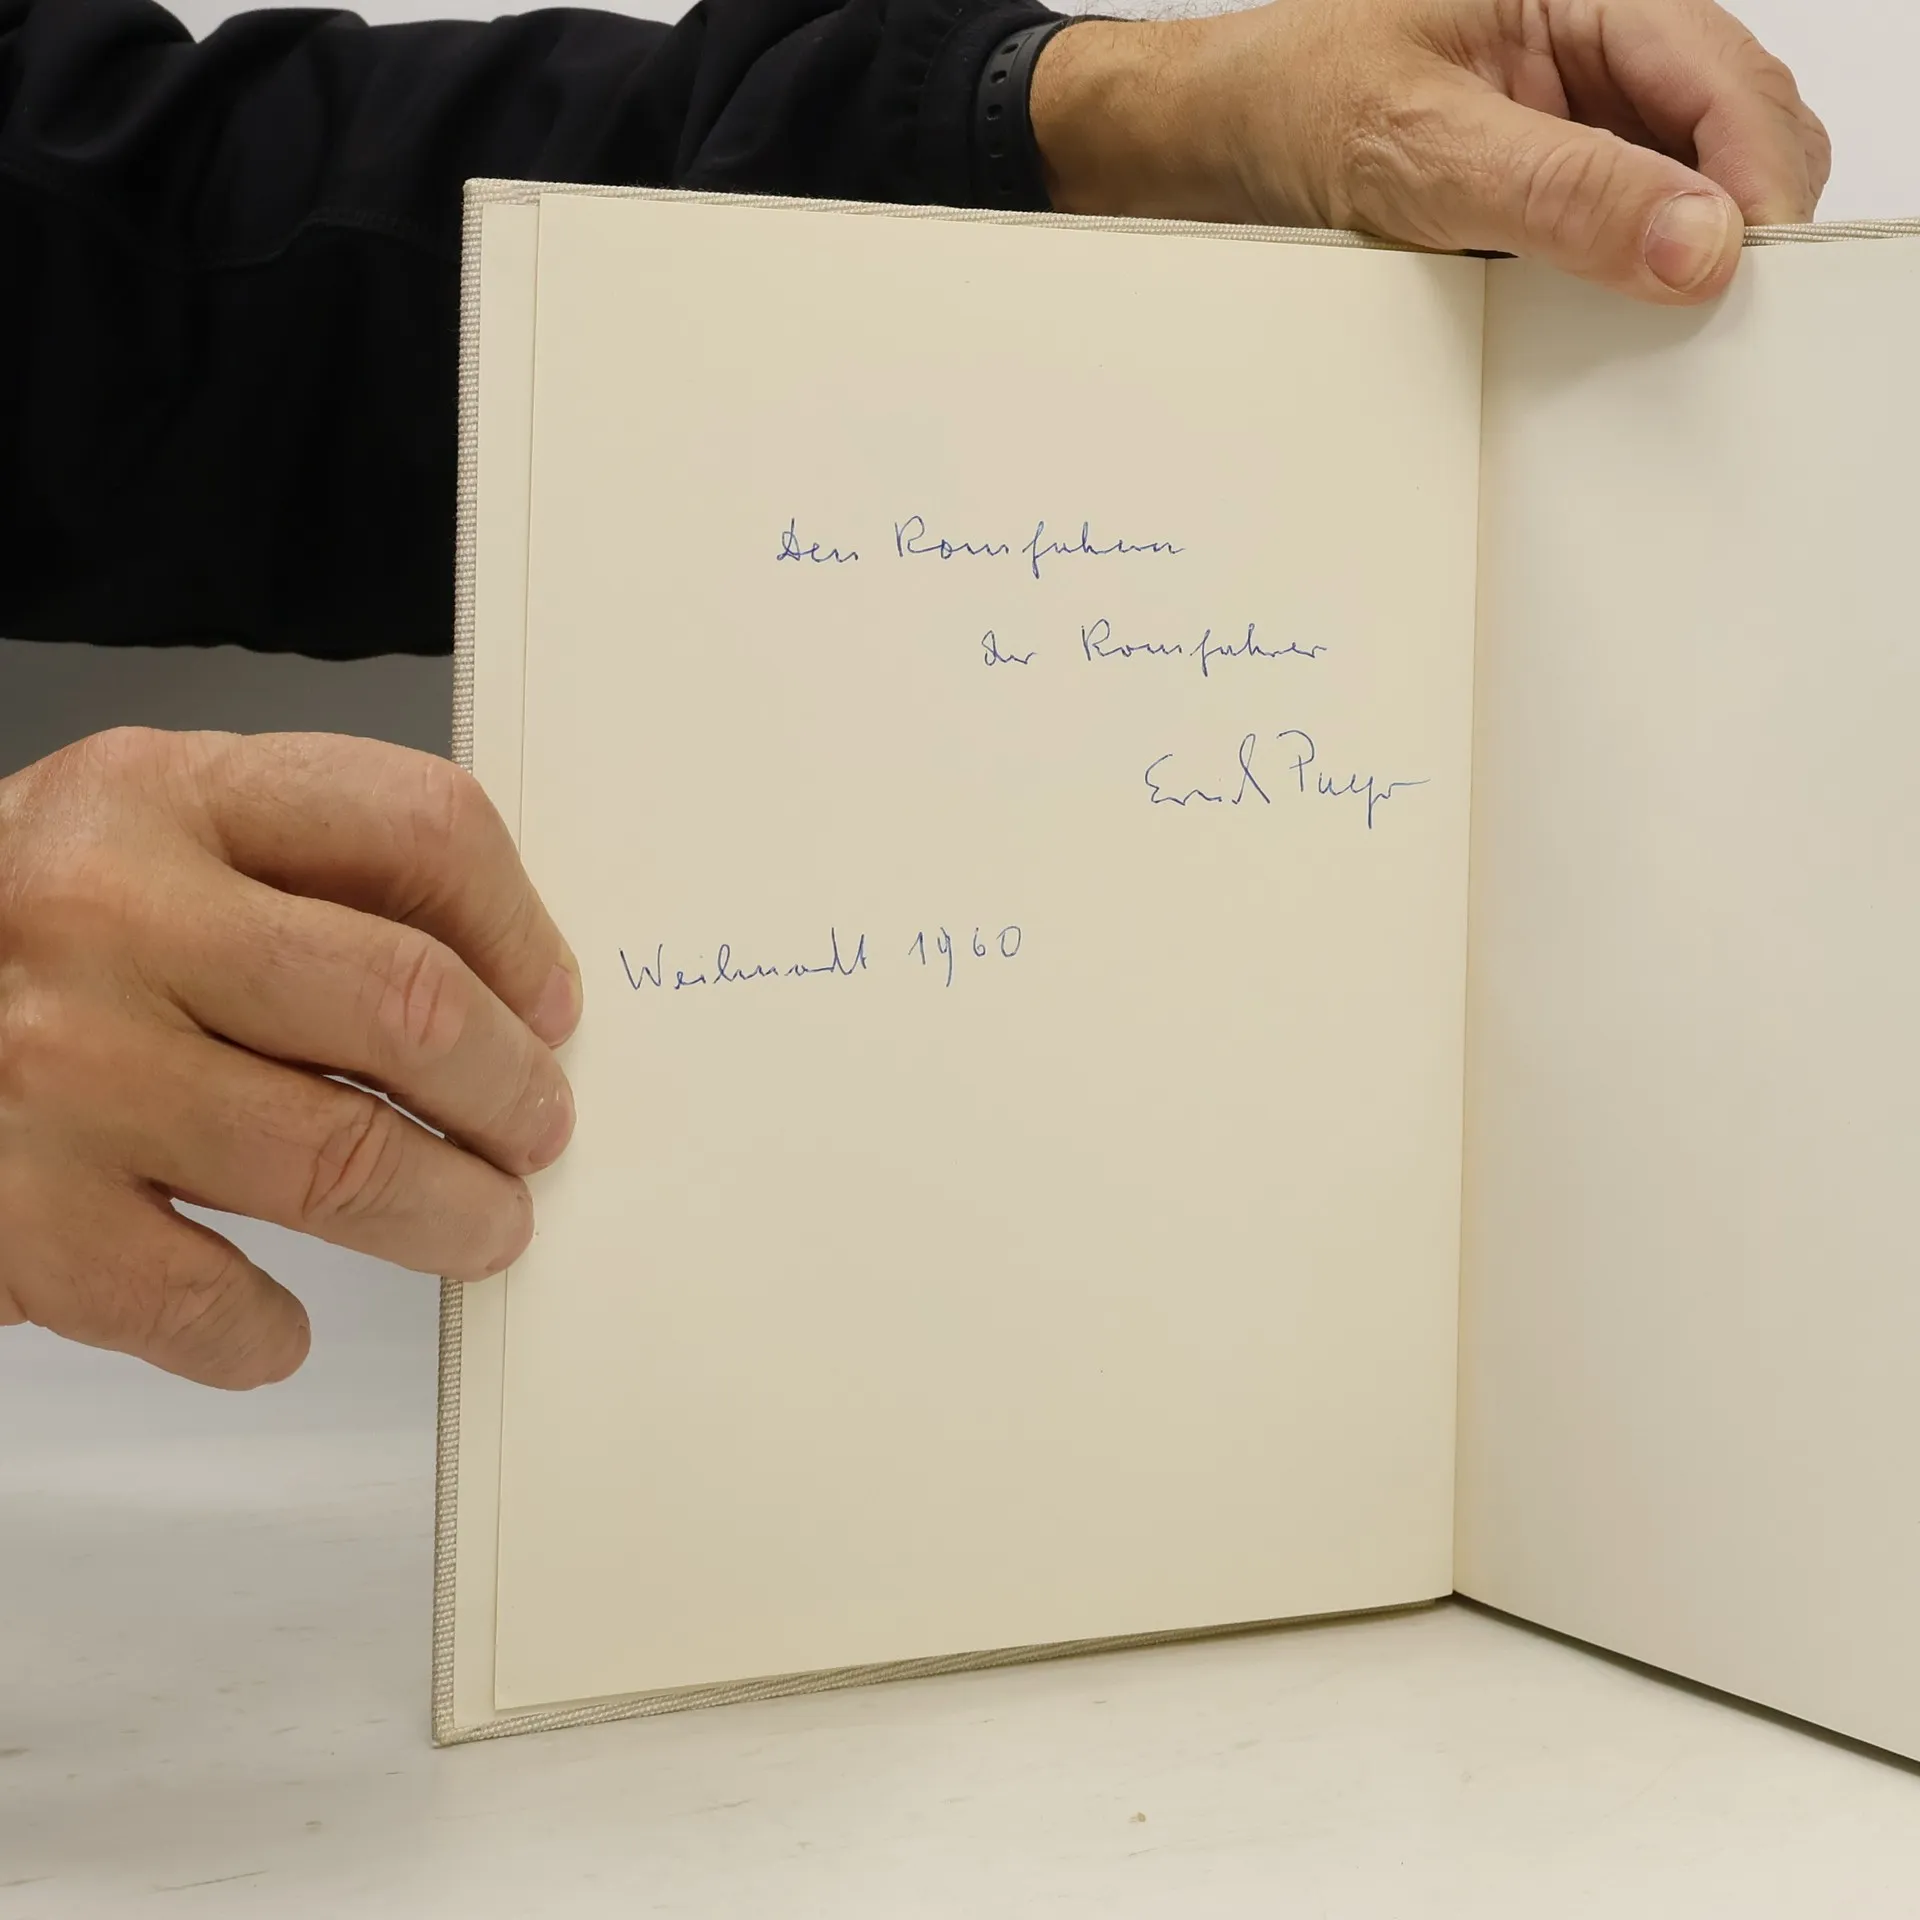 Den Romfahrern
der Romfahrer
Erich
Weihnacht 1960